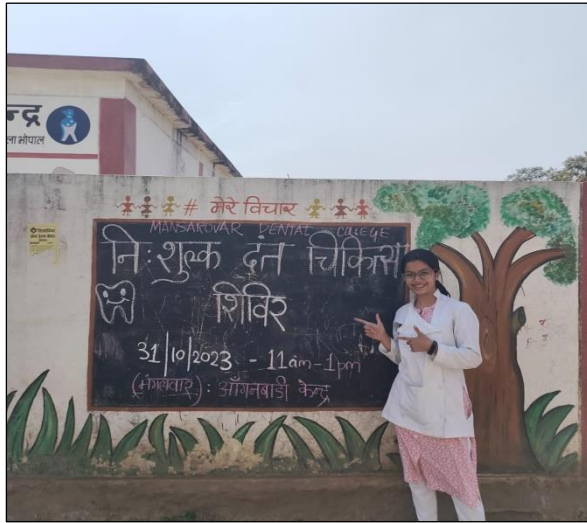 न्द्र
ला भोपाल
# मेरे विचार
MANSAROVAR DENTAL COLLEGE
नि:शुल्क दंत चिकित्सा
शिविर
31/10/2023 - 11am - 1pm
(मंगलवार) : आँगनबाडी केन्द्र